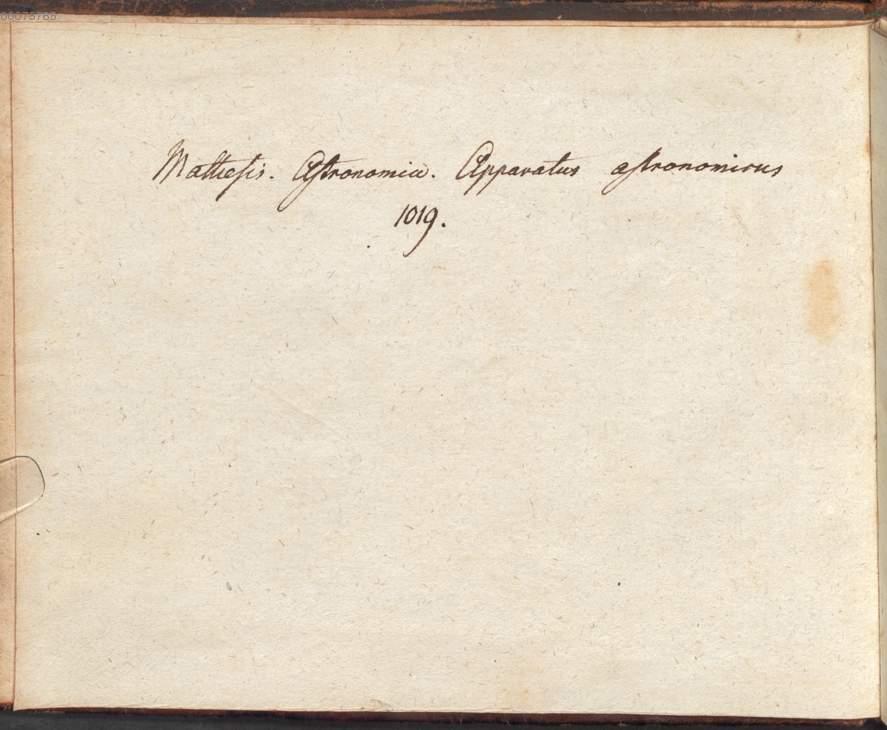 Mathesis. Astronomia. Apparatus astronomicus
1019.